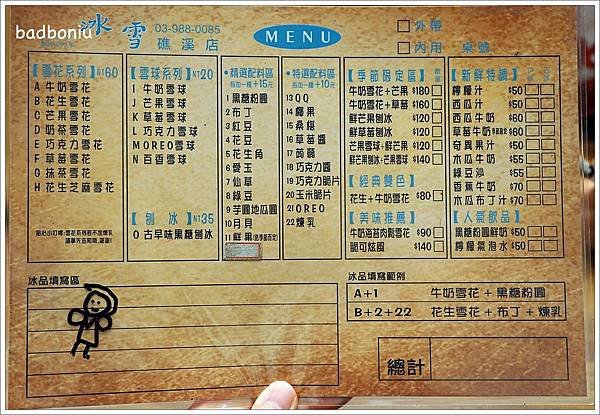 badboniu
冰雪
03-988-0085
礁溪店
MENU
外帶
內用 桌號
【雪花系列】NT60
A 牛奶雪花
B 花生雪花
C 芒果雪花
D 奶茶雪花
E 巧克力雪花
F 草莓雪花
G 抹茶雪花
H 花生芝麻雪花
【雪球系列】NT20
I 牛奶雪球
J 芒果雪球
K 草莓雪球
L 巧克力雪球
M OREO雪球
N 百香雪球
【刨冰】NT35
O 古早味黑糖刨冰
•精選配料區•
每加一種+15元
1 黑糖粉圓
2 布丁
3 紅豆
4 花豆
5 花生角
6 愛玉
7 仙草
8 綠豆
9 芋圓地瓜圓
10 月貝
11 鮮果
•特選配料區•
每加一種+10元
13 QQ
14 椰果
15 桑椹
16 草莓醬
17 蒟蒻
18 巧克力醬
19 巧克力脆片
20 玉米脆片
21 OREO
22 煉乳
【季節限定區】
牛奶雪花+芒果 $180
牛奶雪花+草莓 $160
鮮芒果刨冰 $120
鮮草莓刨冰 $120
芒果雪球+鮮芒果 $120
鮮芒果刨冰+芒果雪球 $140
【經典雙色】
花生+牛奶雪花 $80
【美味推薦】
牛奶海苔肉鬆雪花 $90
脆可炫風 $140
【新鮮特調】
檸檬汁 $50
西瓜汁 $50
西瓜牛奶 $60
草莓牛奶 $90
奇異果汁 $50
木瓜牛奶 $55
綠豆沙 $55
香蕉牛奶 $70
木瓜布丁汁 $70
【人氣飲品】
黑糖粉圓鮮奶 $50
檸檬氣泡水 $50
冰品填寫區
冰品填寫範例
A+1 牛奶雪花+黑糖粉圓
B+2+22 花生雪花+布丁+煉乳
總計